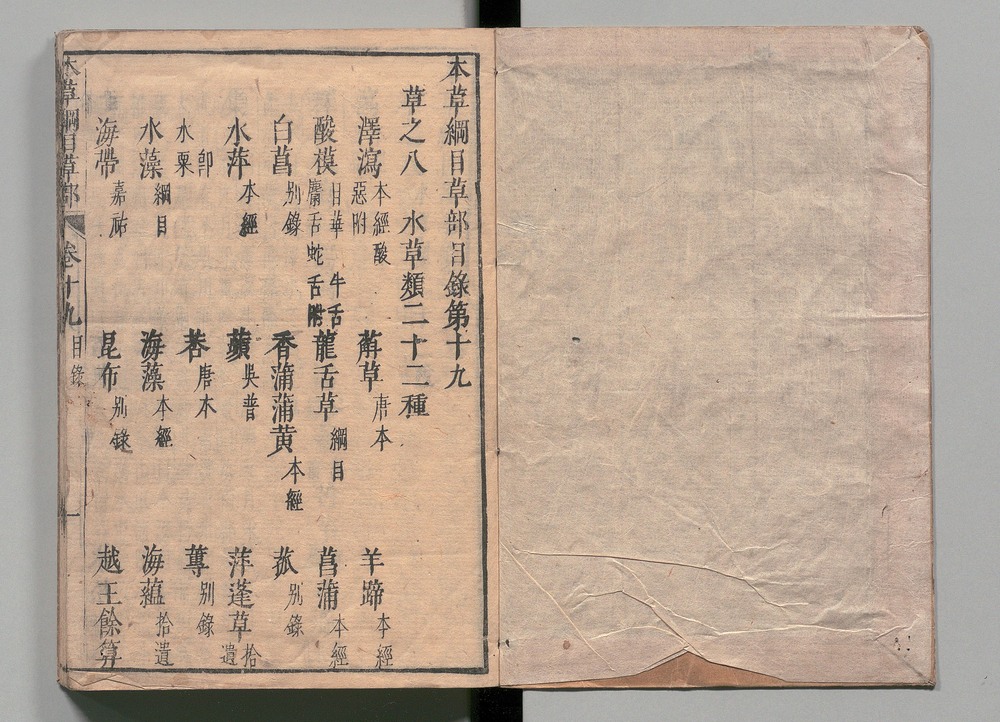 本草綱目草部目錄第十九
草之八 水草類二十二種
澤瀉 本經 酸惡附 蔛草 唐本 羊蹄 本經
酸模 日華 牛舌麕舌蛇舌附 龍舌草 綱目 菖蒲 本經
白菖 别錄 香蒲蒲黄 本經 菰 别錄
水萍 本經 蘋 吳普 萍蓬草 拾遺
水粟 卽 荇 唐本 蓴 别錄
水藻 綱目 海藻 本經 海蘊 拾遺
海帶 嘉祐 昆布 别錄 越王餘算
本草綱目草部 卷十九 目錄 一